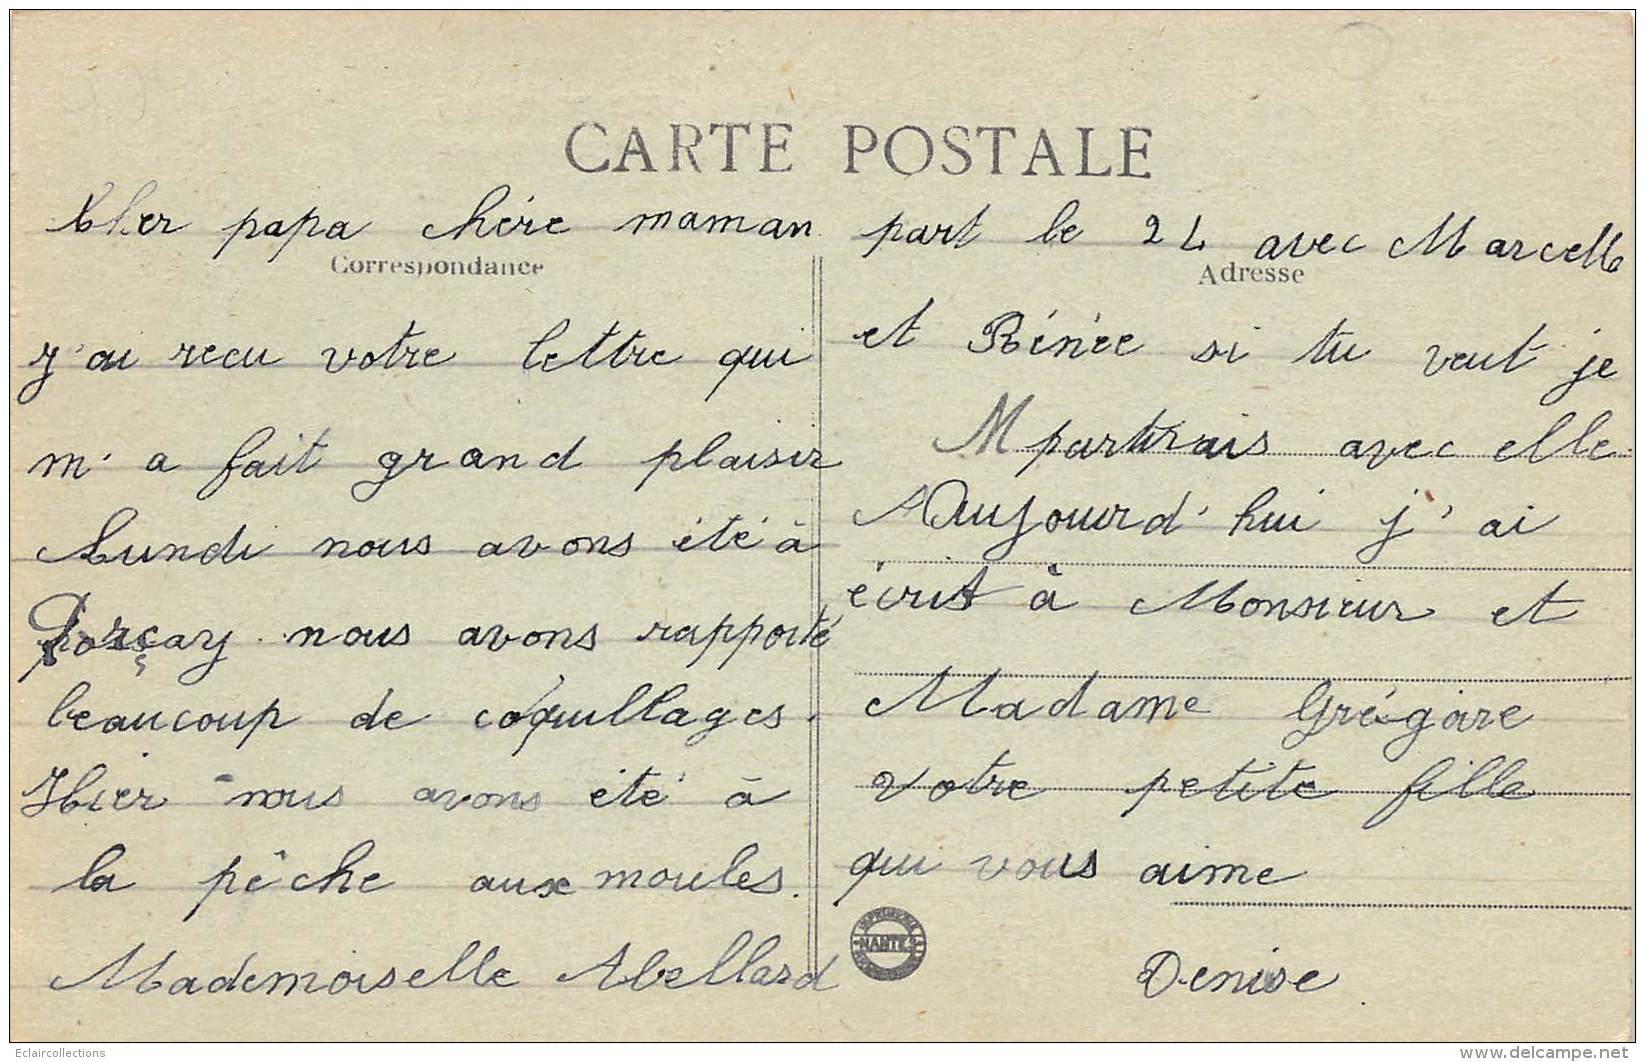 CARTE POSTALE
Cher papa chére maman
Correspondance
j'ai recu votre lettre qui
m'a fait grand plaisir
Lundi nous avons été à
Porçay nous avons rapporté
beaucoup de coquillages.
Hier nous avons été à
la pêche aux moules.
Mademoiselle Abellard
part le 24 avec Marcelle
Adresse
et Rénée si tu veut je
M partirais avec elle
Aujourd'hui j'ai
écrit à Monsieur et
Madame Grégoire
votre petite fille
qui vous aime
NANTES
Denise
Eclaircollections
www.delcampe.net